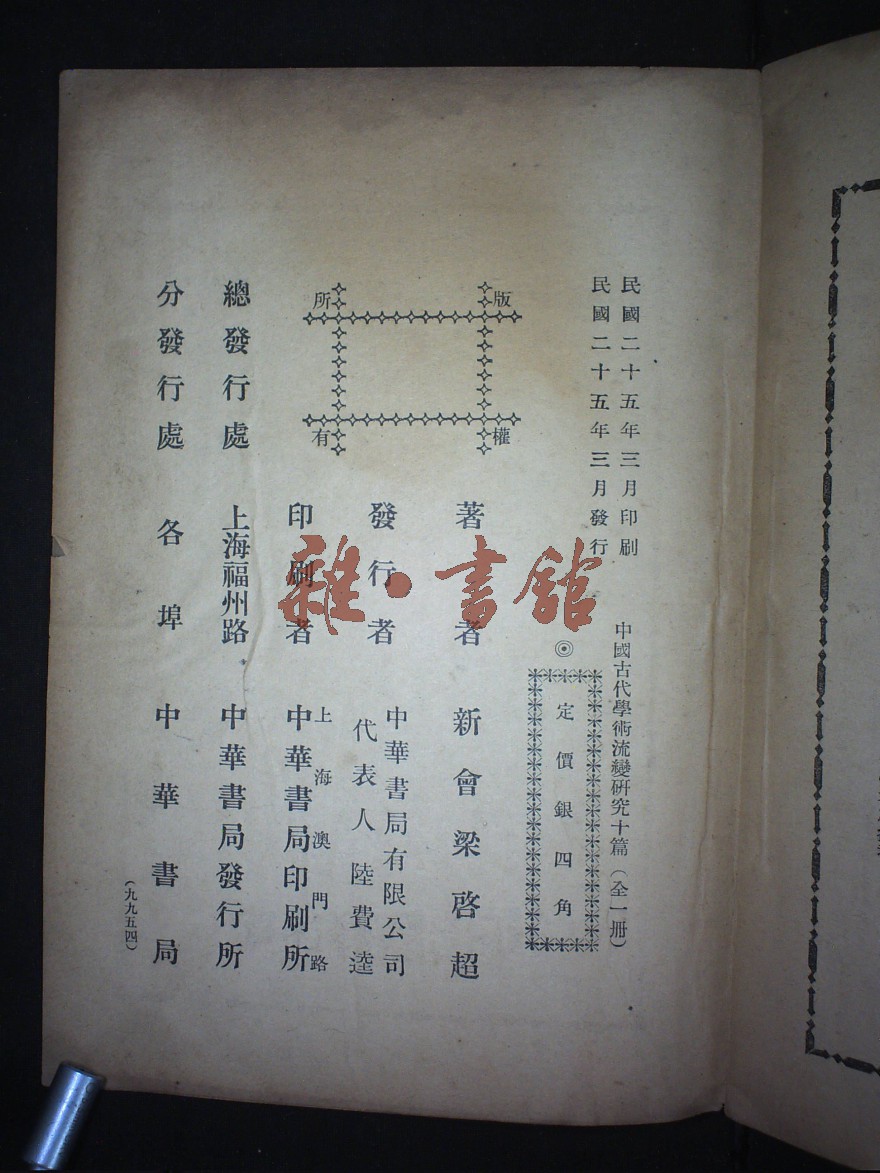 民國二十五年三月印刷
民國二十五年三月發行
中國古代學術流變研究十篇（全一册）
◎
定價銀四角
版權
所有
著者 新會梁啓超
發行者 中華書局有限公司
代表人陸費逵
印刷者 上海澳門路
中華書局印刷所
總發行處 上海福州路 中華書局發行所
分發行處 各埠 中華書局
（九九五四）
雜·書舘